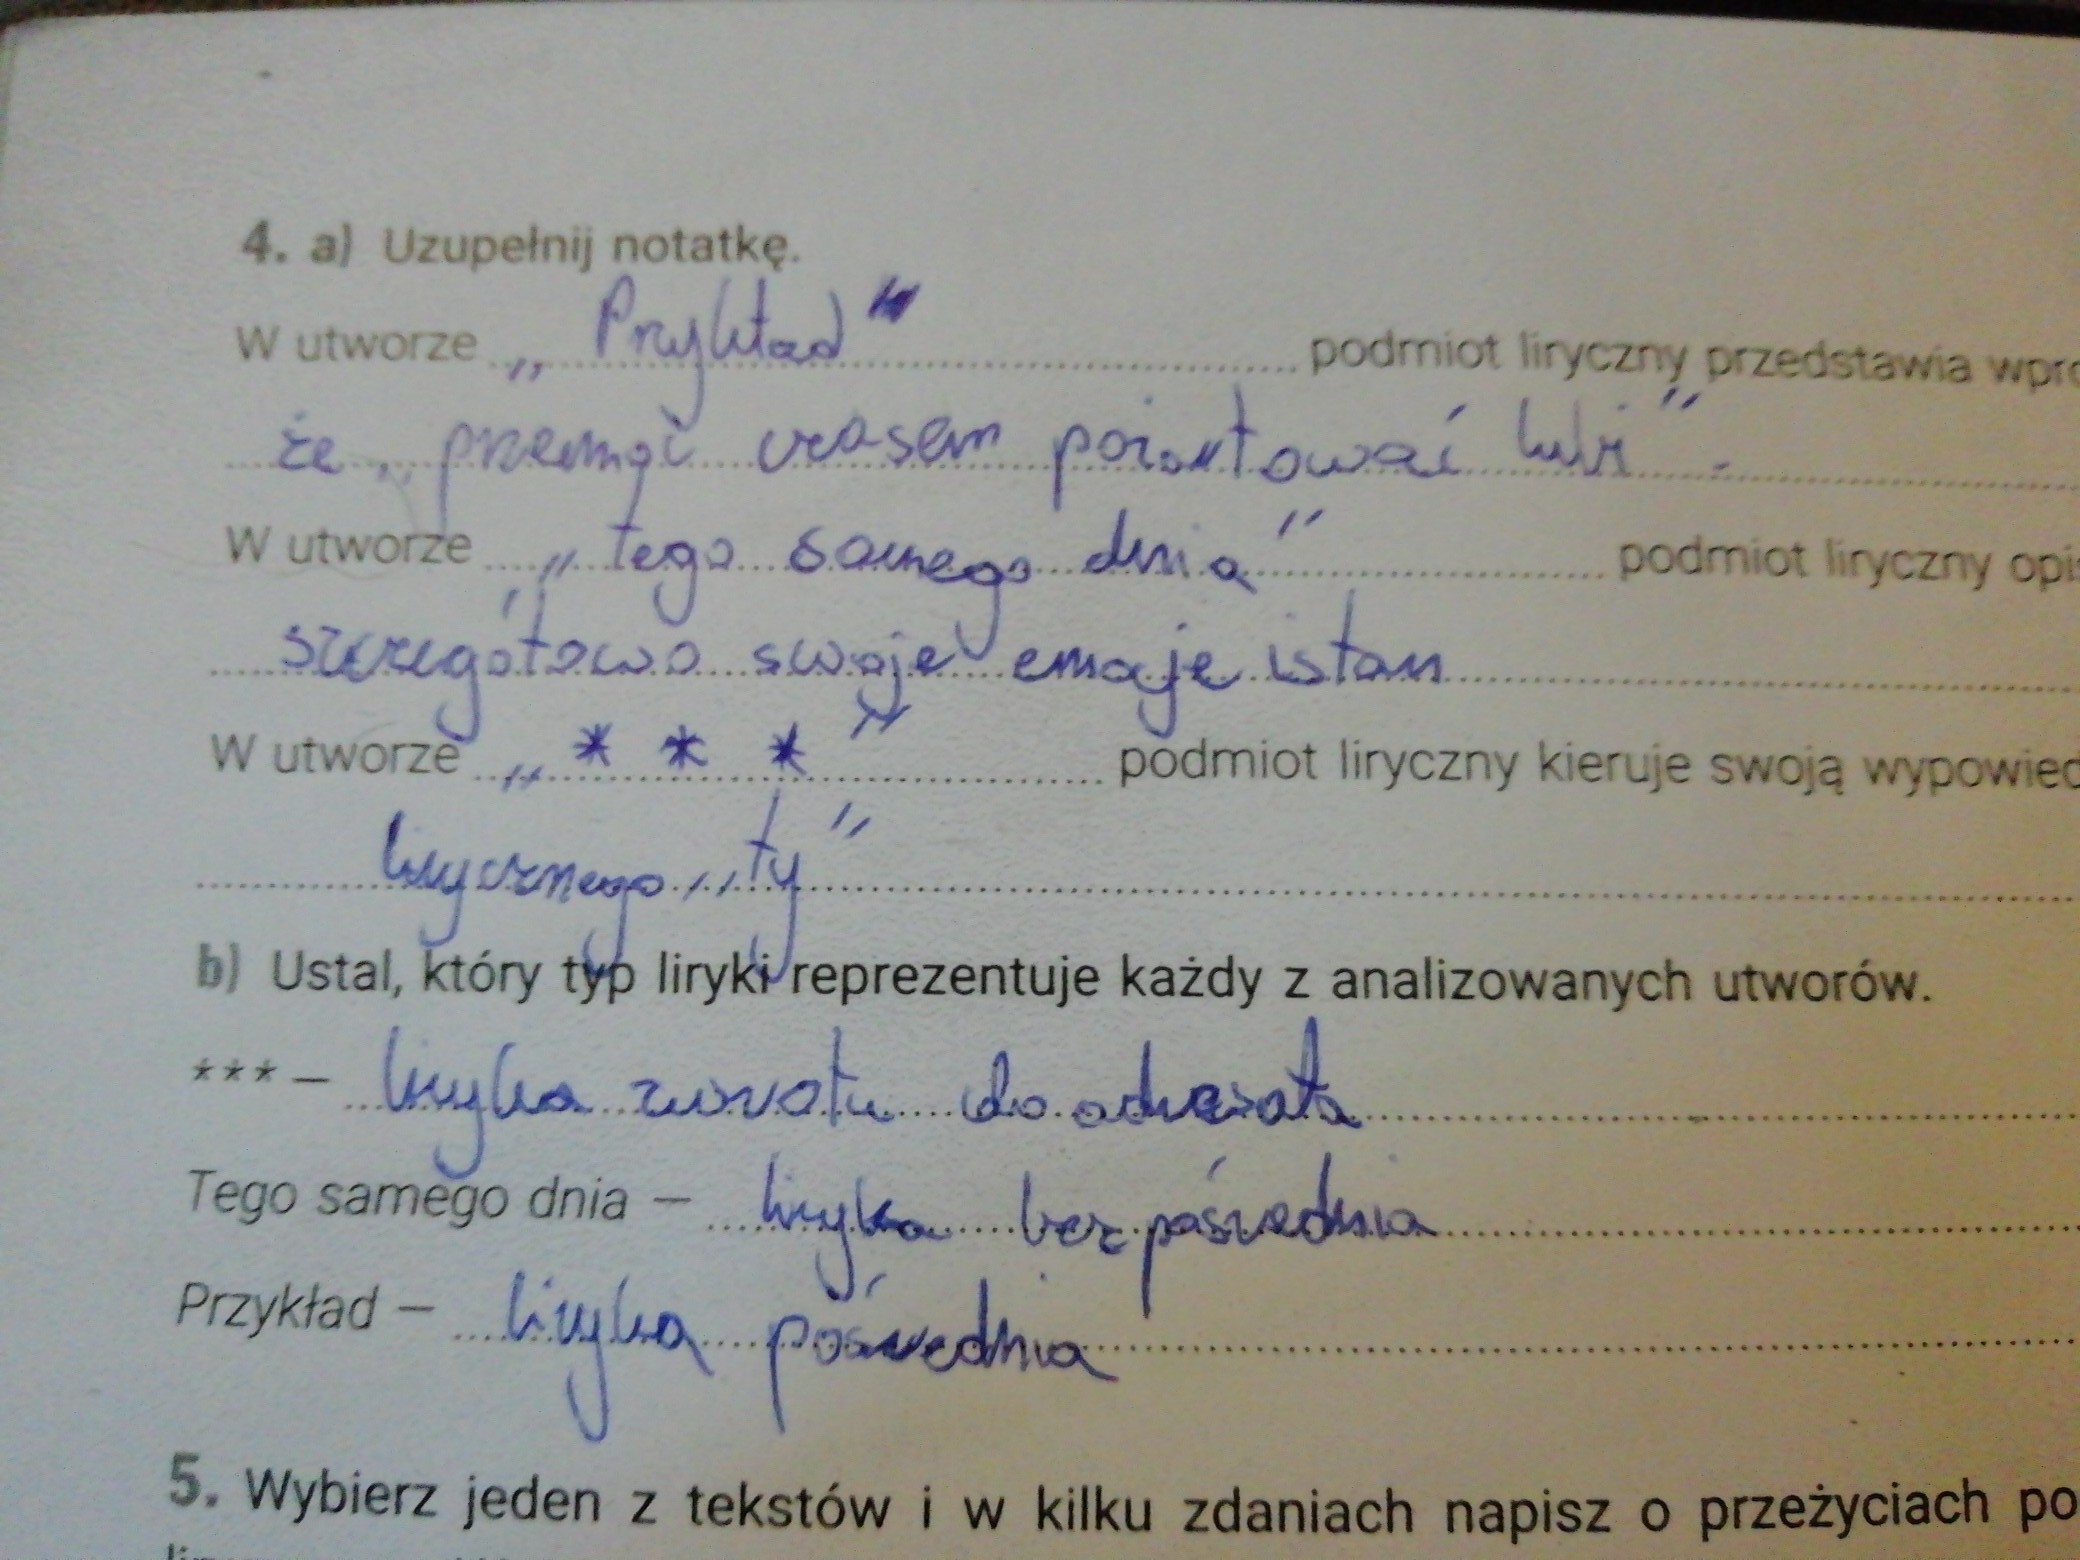 4. a) Uzupełnij notatkę.
W utworze „Przykład" podmiot liryczny przedstawia wpro
że „ przemoc czasem pożartować lubi".
W utworze „tego samego dnia" podmiot liryczny opis
szczegółowo swoje emocje i stan
W utworze „* * *" podmiot liryczny kieruje swoją wypowied
lirycznego „ty"
b) Ustal, który typ liryki reprezentuje każdy z analizowanych utworów.
*** – liryka zwrotu do adresata
Tego samego dnia – liryka bezpośrednia
Przykład – liryka pośrednia
5. Wybierz jeden z tekstów i w kilku zdaniach napisz o przeżyciach po